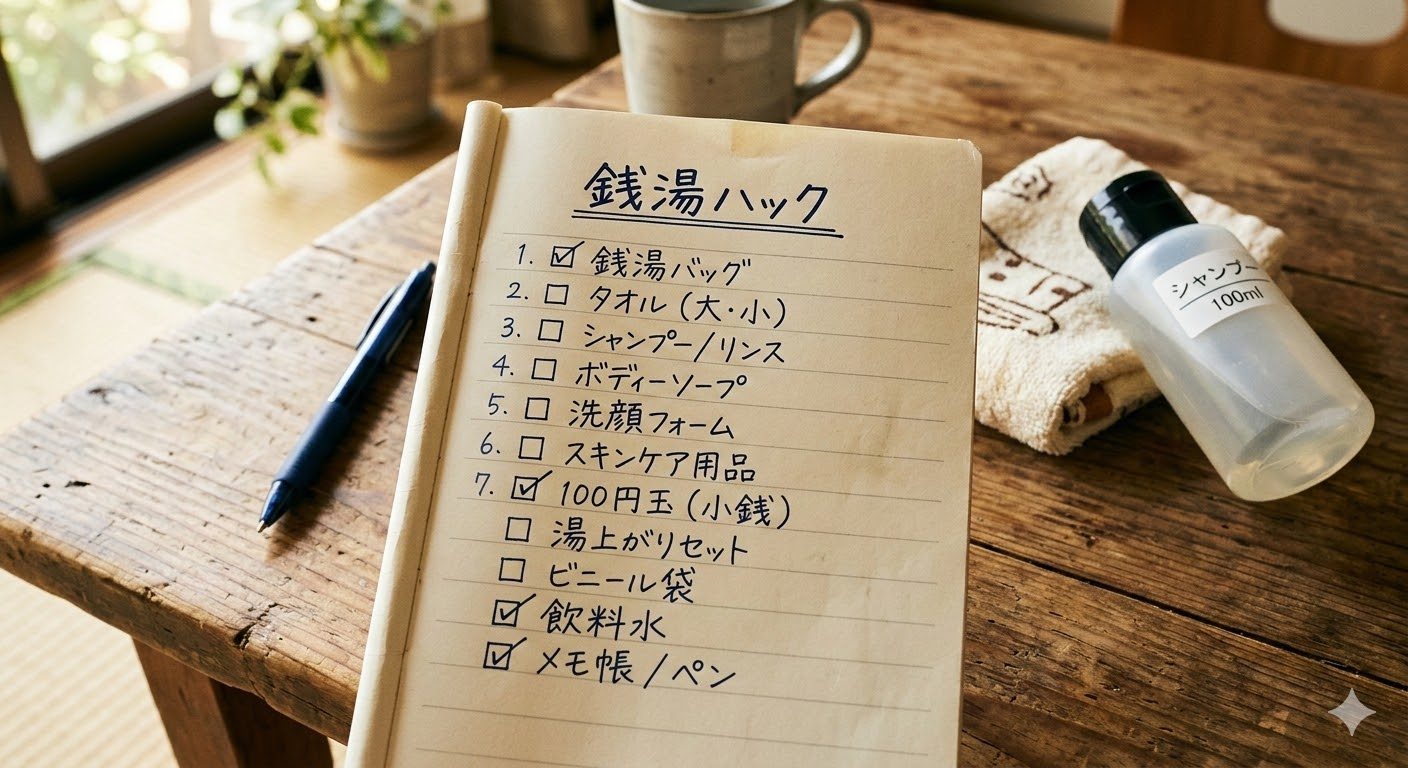 銭湯ハック
1. ☑ 銭湯バッグ
2. ☐ タオル (大・小)
3. ☐ シャンプー/リンス
4. ☐ ボディーソープ
5. ☐ 洗顔フォーム
6. ☐ スキンケア用品
7. ☑ 100円玉 (小銭)
☐ 湯上がりセット
☐ ビニール袋
☑ 飲料水
☑ メモ帳/ペン
シャンプー
100ml